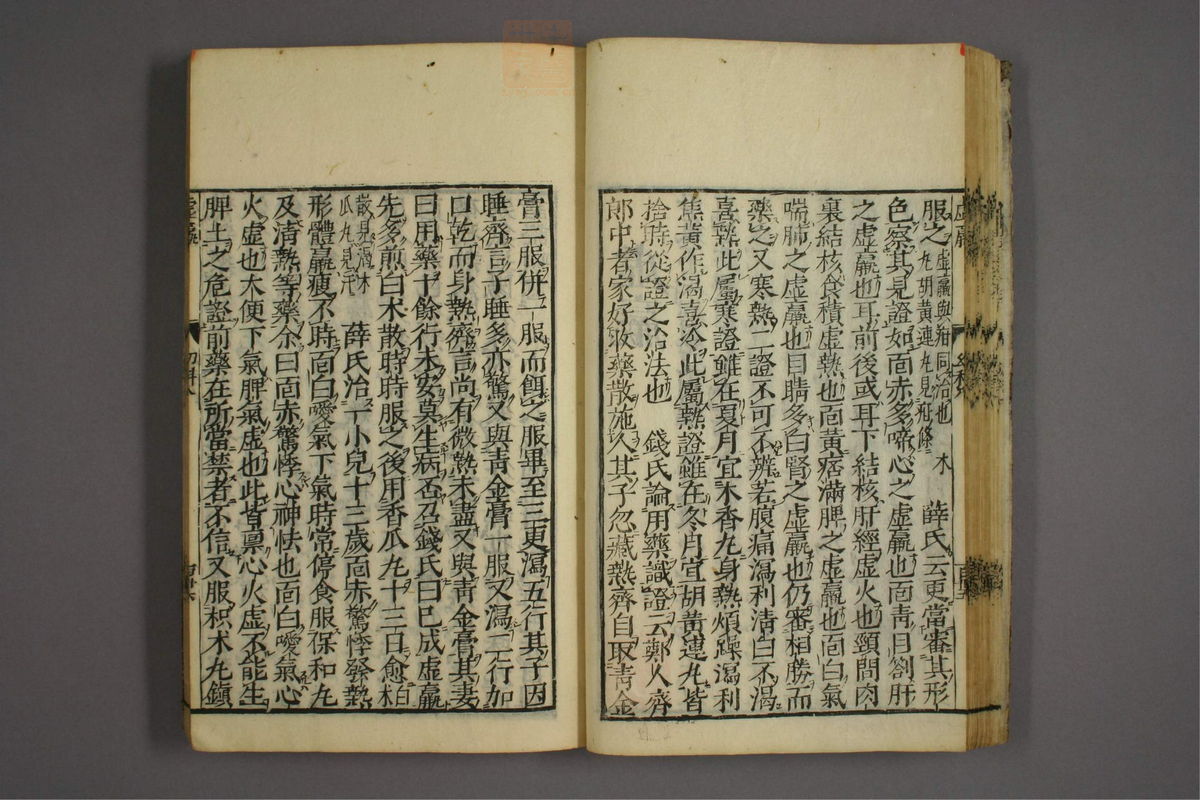 服之虛羸與疳同治也木
九胡黄連九見疳條 薛氏云更當審其形
色察其見證如面赤多啼心之虛羸也面靑目劄肝
之虛羸也耳前後或耳下結核肝經虛火也頸間肉
裏結核食積虛熱也面黄痞滿脾之虛羸也面白氣
喘肺之虛羸也目睛多白腎之虛羸也仍審相勝而
藥之又寒熱二證不可不辨若腹痛瀉利淸白不渴
喜熱此屬寒證雖在夏月宜木香丸身熱煩躁瀉利
焦黄作渴喜冷此屬熱證雖在冬月宜胡黄連丸皆
捨時從證之治法也 錢氏論用藥識證云鄭人齊
郎中者家好收藥散施久其子忽藏熱齊自取靑金
膏三服併一服而餌之服畢至三更瀉五行其子因
睡齊言子睡多亦驚又與靑金膏一服又瀉二行加
口乾而身熱齊言尚有微熱未盡又與靑金膏其妻
曰用藥十餘行未安莫生病否召錢氏曰已成虛羸
先多煎白术散時時服之後用香瓜丸十三日愈栢
散見渴休
瓜丸見汗 薛氏治一小兒十三歲面赤驚悸發熱
形體羸瘦不時面白噯氣下氣時常停食服保和丸
及淸熱等藥余曰面赤驚悸心神怯也面白噯氣心
火虛也大便下氣脾氣虛也此皆禀心火虛不能生
脾土之危證前藥在所當禁者不信又服枳术丸鎮
虛羸